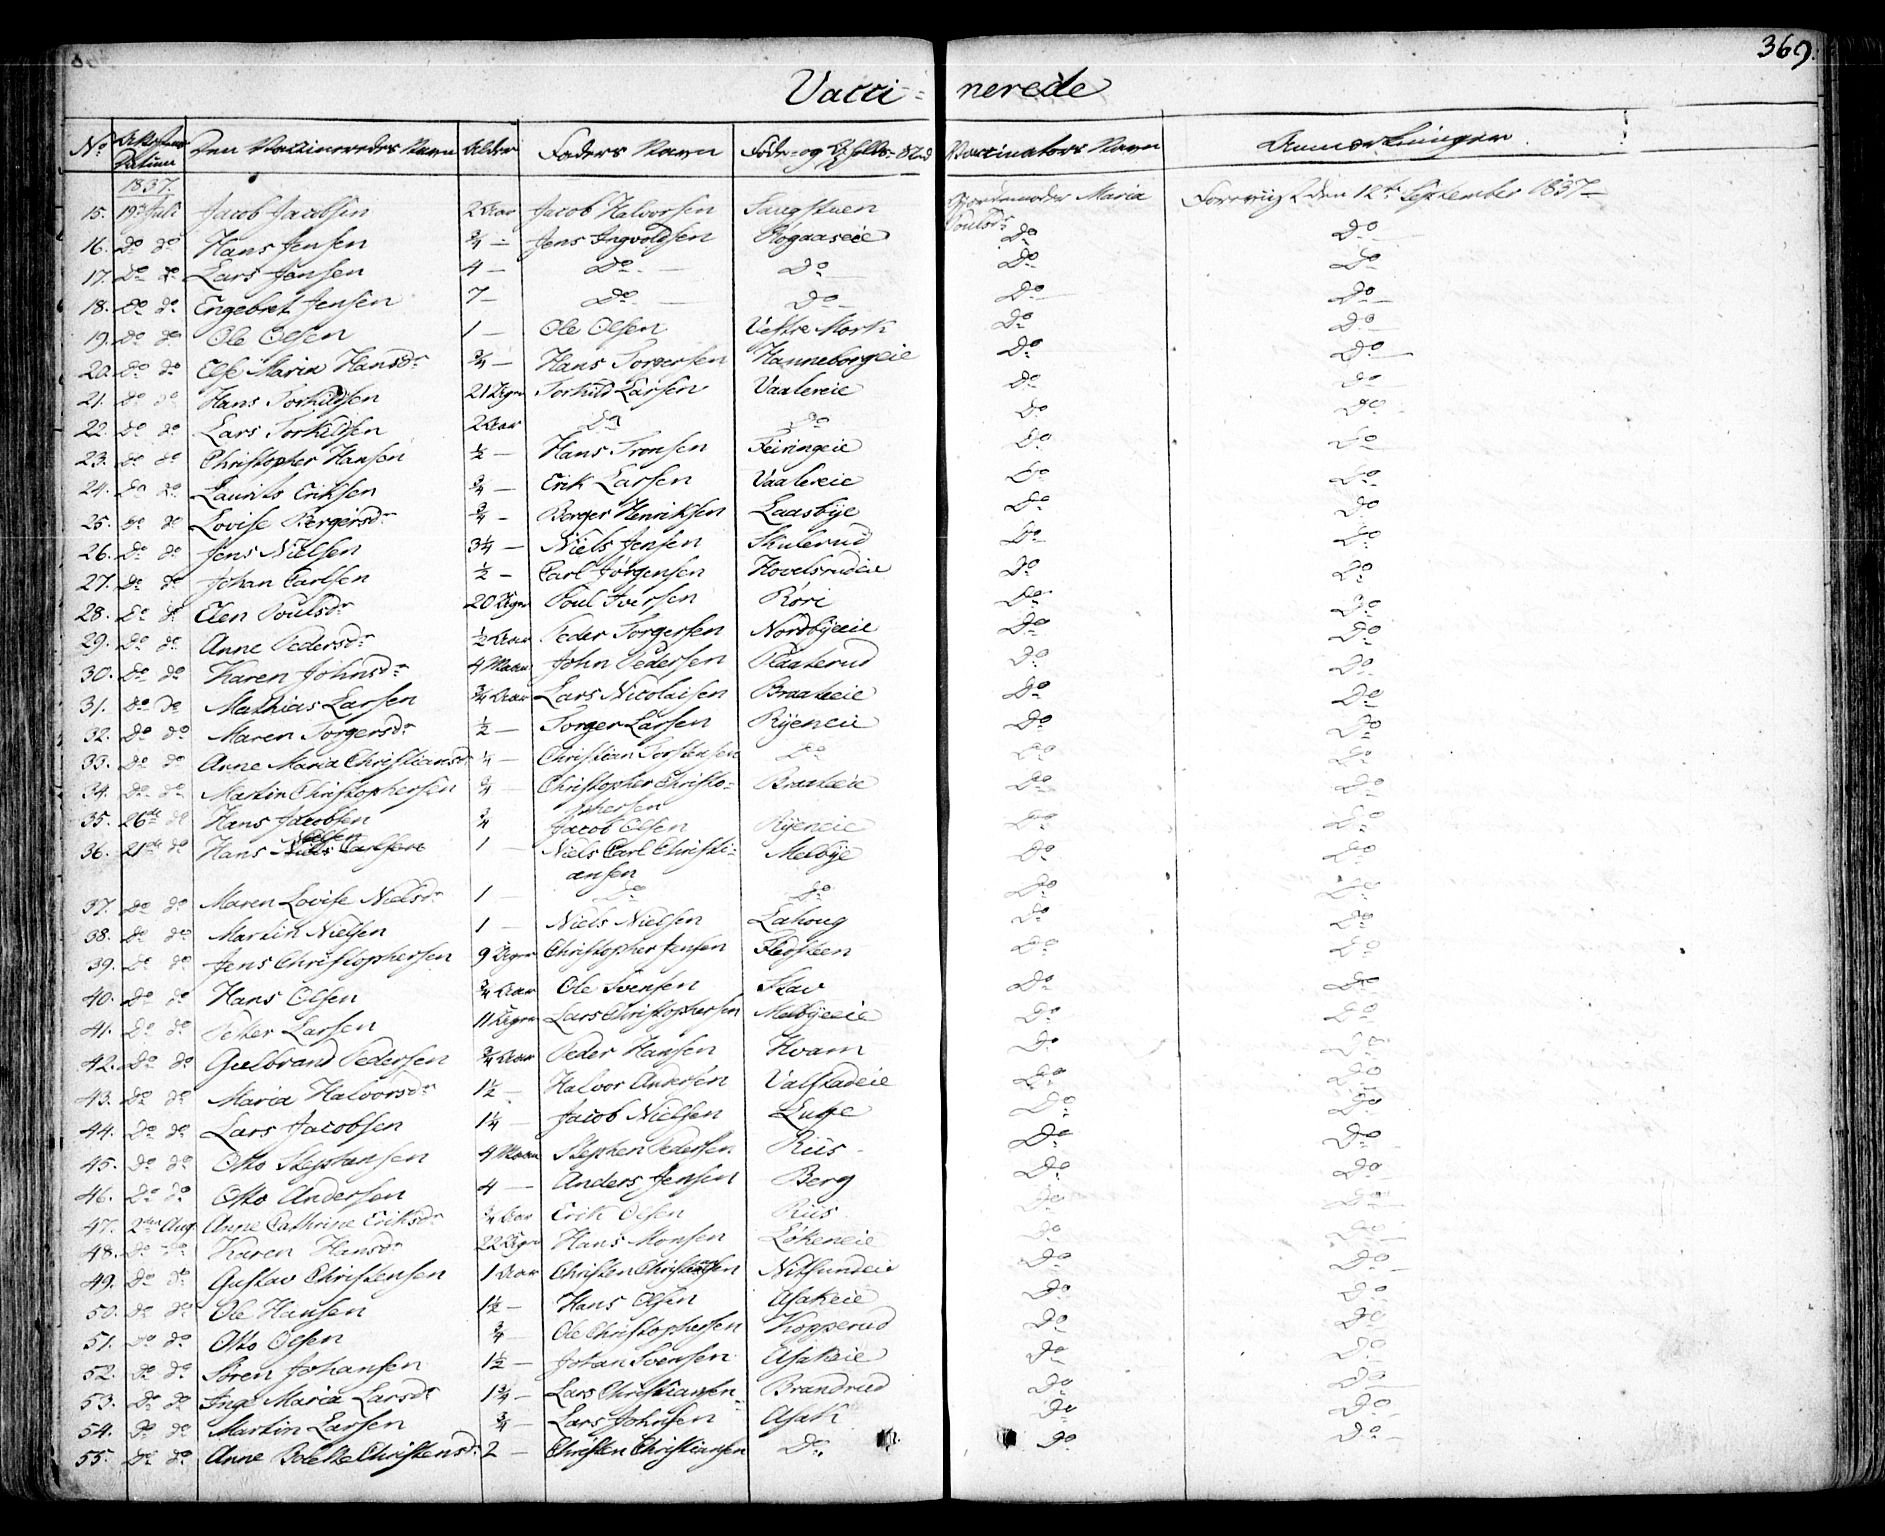 369.
Vacci- nerede
No Attestens Datum Den Vaccineredes Navn Alder Faders Navn Føde- og Opholds-Sted Vaccinators Navn Anmærkninger
1837.
15. 19de Juli Jacob Jacobsen 2 Aar Jacob Halvorsen Saugstuen Gjordemoder Maria Poulsdr Forevist den 12te September 1837
16. Do do Hans Jensen 3/4 - Jens Ingvoldsen Rogaaseie Do Do
17. Do do Lars Jensen 4 - Do Do Do Do
18. Do do Engebret Jensen 7 - Do Do Do Do
19. Do do Ole Olsen 1 - Ole Olsen Vestre Mork Do Do
20. Do do Else Maria Hansdr 3/4 - Hans Torgersen Hanneborgeie Do Do
21. Do do Hans Torkildsen 21 Uger Torkild Larsen Vaalereie Do Do
22. Do do Lars Torkildsen 2 Aar Do Do Do Do
23. Do do Christopher Hansen 1/2 - Hans Tronsen Feiringeie Do Do
24. Do do Laurits Eriksen 3/4 - Erik Larsen Vaalereie Do Do
25. Do do Lovise Bergersdr 3/4 - Berger Henriksen Laasbye Do Do
26. Do do Jens Nielsen 3 1/4 - Niels Jensen Skulerud Do Do
27. Do do Johan Carlsen 1/2 - Carl Jørgensen Hovelsrudeie Do Do
28. Do do Elen Poulsdr 20 Uger Poul Iversen Røri Do Do
29. Do do Anne Pedersdr 1/2 Aar Peder Torgersen Nordbyeie Do Do
30. Do do Karen Johnsdr 4 Maan John Pedersen Raakerud Do Do
31. Do do Mathias Larsen 3/4 Aar Lars Nicolaisen Braateeie Do Do
32. Do do Maren Torgersdr 1/2 - Torger Larsen Ryeneie Do Do
33. Do do Anne Maria Christiansdr 1/4 - Christian Torstensen Do Do Do
34. Do do Martin Christophersen 3/4 - Christopher Christo-
phersen Braateeie Do Do
35. 26de do Hans Jacobsen 3/4 Jacob Olsen Ryeneie Do Do
36. 21de do Hans Niels Carlsen 1 - Niels Carl Christi-
ansen Melbye Do Do
37. Do do Maren Lovise Nielsdr 1 - Do Do Do Do
38. Do do Martin Nielsen 1 - Niels Nielsen Lahoug Do Do
39. Do do Jens Christophersen 9 Uger Christopher Jensen Do Do
40. Do do Hans Olsen 3/4 Aar Ole Svensen Skav Do Do
41. Do do Petter Larsen 11 Uger Lars Christophersen Melbyeeie Do Do
42. Do do Gulbrand Pedersen 3/4 Aar Peder Hansen Hvam Do Do
43. Do do Maria Halvorsdr 1 1/2 - Halvor Andersen Valstadeie Do Do
44. Do do Lars Jacobsen 1 1/4 - Jacob Nielsen Do Do
45. Do do Otto Stephansen 4 Maan Stephen Pedersen Riis Do Do
46. Do do Otto Andersen 4 - Anders Jensen Berg Do Do
47. 2den Aug Anne Cathrine Eriksdr 3/4 Aar Erik Olsen Riis Do Do
48. Do do Karen Hansdr 22 Uger Hans Monsen Løkeneie Do Do
49. Do do Gustav Christensen 1 Aar Christen Christiansen Nitsundeie Do Do
50. Do do Ole Hansen 1 1/2 - Hans Olsen Asakeie Do Do
51. Do do Otto Olsen 3/4 - Ole Christophersen Kopperud Do Do
52. Do do Søren Johansen 1 1/2 - Johan Svensen Asakeie Do Do
53. Do do Inge Maria Larsdr 1 3/4 - Lars Christiansen Brandrud Do Do
54. Do do Martin Larsen 3/4 - Lars Johnsen Asak Do Do
55. Do do Anne Bolette Christensdr 2 - Christen Christiansen Do Do Do